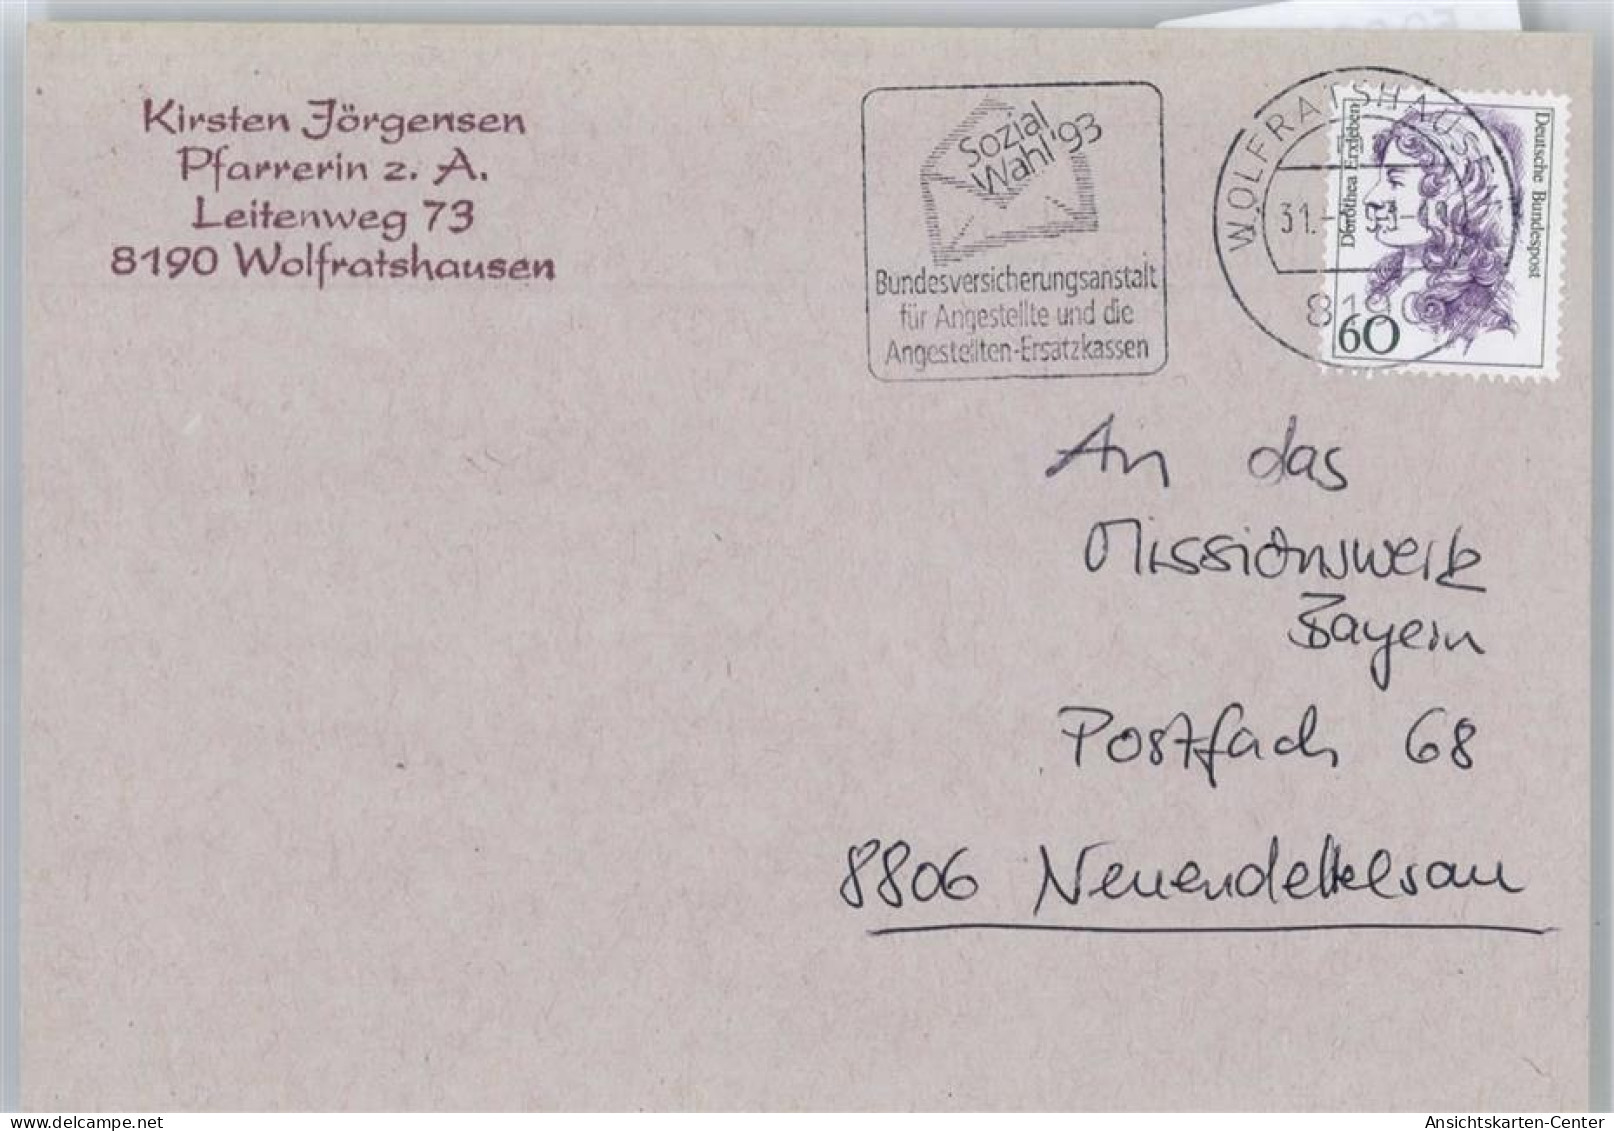 Kirsten Jörgensen
Pfarrerin z. A.
Leitenweg 73
8190 Wolfratshausen
Sozial
Wahl '93
Bundesversicherungsanstalt
für Angestellte und die
Angestellten-Ersatzkassen
WOLFRATSHAUSEN
31.
8190
Dorothea Erxleben
Deutsche Bundespost
60
An das
Missionswerk
Bayern
Postfach 68
8806 Neuendettelsau
Ansichtskarten-Center